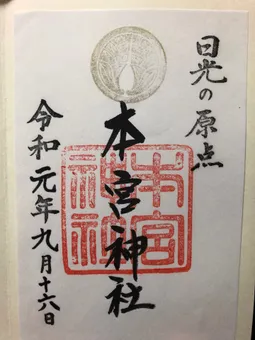 日光の原点
本宮神社
令和元年九月十六日
本宮神社